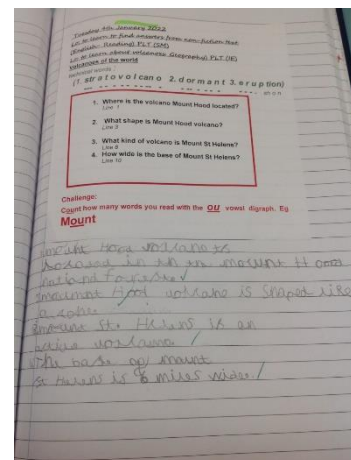 Tuesday 4th January 2022
L.o. to learn to find answers from non-fiction text
(English - Reading) PLT (SM)
L.o. to learn about volcanoes (Geography) PLT (IE)
Volcanoes of the world
technical words
(1. stratovolcano 2. dormant 3. eruption)
1. Where is the volcano Mount Hood located?
Line 1
2. What shape is Mount Hood volcano?
Line 3
3. What kind of volcano is Mount St Helens?
Line 8
4. How wide is the base of Mount St Helens?
Line 10
Challenge:
Count how many words you read with the ou vowel digraph. Eg
Mount
mount Hood volcano is
in th mount Hood
national Forest
mount Hood volcano is shaped like
a cone
mount St. Helens is an
active volcano
The base of mount
St Helens is 6 miles wide